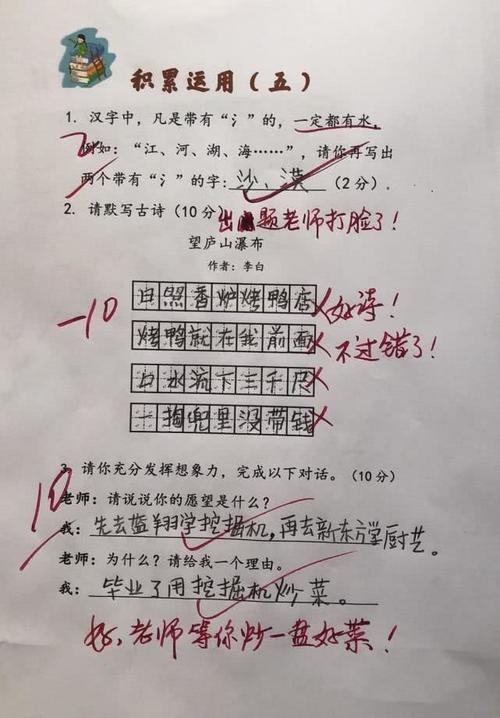 积累运用（五）
1. 汉字中，凡是带有“氵”的，一定都有水，
例如：“江、河、湖、海……”，请你再写出
两个带有“氵”的字：沙、漠（2分）.
2
2. 请默写古诗（10分）
出题老师打脸了！
望庐山瀑布
作者：李白
-10
日照香炉烤鸭店
好诗！
烤鸭就在我前面
不过错了！
口水流下三千尺
一掏兜里没带钱
3. 请你充分发挥想象力，完成以下对话。（10分）
10
老师：请说说你的愿望是什么？
我：先去蓝翔学挖掘机，再去新东方学厨艺。
老师：为什么？请给我一个理由。
我：毕业了用挖掘机炒菜。
好，老师等你炒一盘好菜！